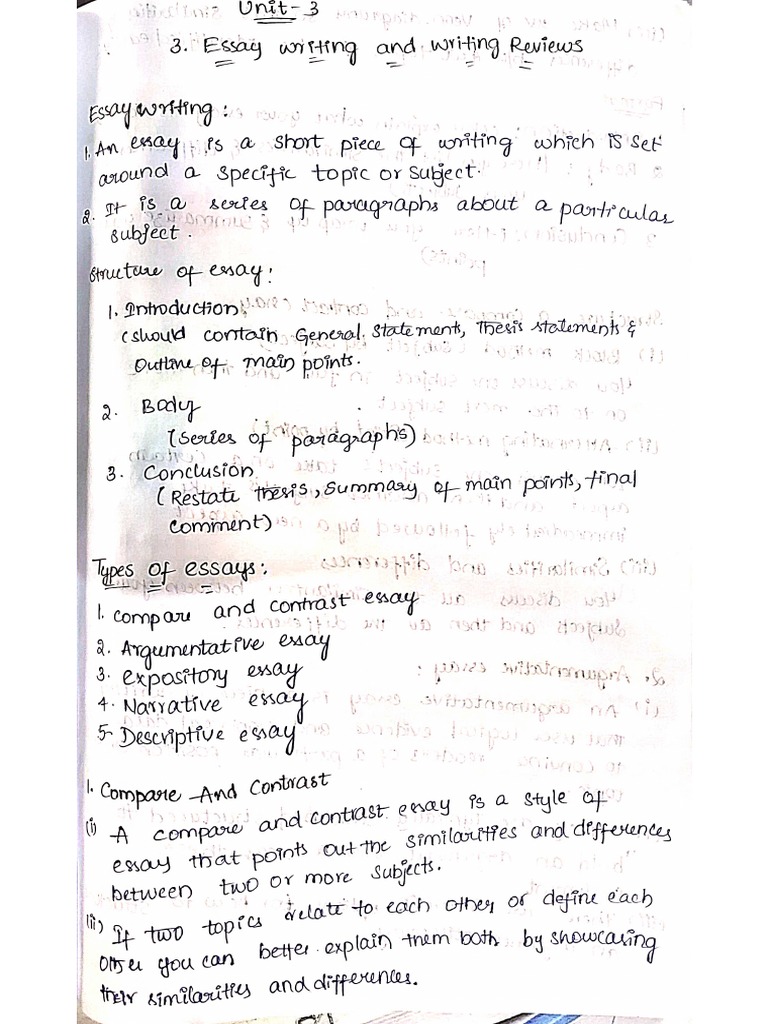 Unit-3
3. Essay writing and writing Reviews
Essay writing :
1. An essay is a short piece of writing which is set
around a specific topic or subject.
2. It is a series of paragraphs about a particular
subject.
Structure of essay:
1. Introduction
(should contain General statement, Thesis statements &
Outline of main points.
2. Body
(series of paragraphs)
3. Conclusion
(Restate thesis, summary of main points, final
comment)
Types of essays:
1. compare and contrast essay
2. Argumentative essay
3. expository essay
4. Narrative essay
5- Descriptive essay
1. Compare And Contrast
(i) A compare and contrast essay is a style of
essay that points out the similarities and differences
between two or more subjects.
(ii) If two topics relate to each other or define each
other you can better explain them both by showcasing
their similarities and differences.